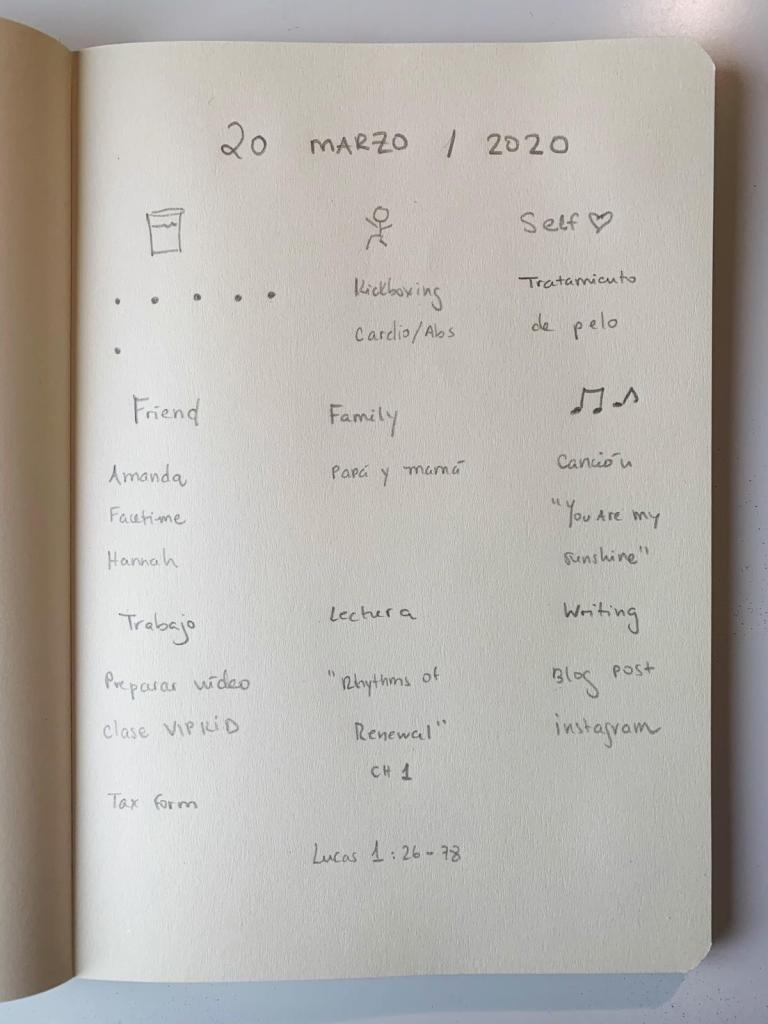 20 MARZO / 2020
Self ♡
Kickboxing
Cardio/Abs
Tratamiento
de pelo
Friend
Amanda
Facetime
Hannah
Family
Papá y mamá
Canción
"You Are my
sunshine"
Trabajo
Preparar vídeo
clase VIPKiD
Tax form
Lectura
"Rhythms of
Renewal"
CH 1
Writing
Blog post
instagram
Lucas 1:26-78